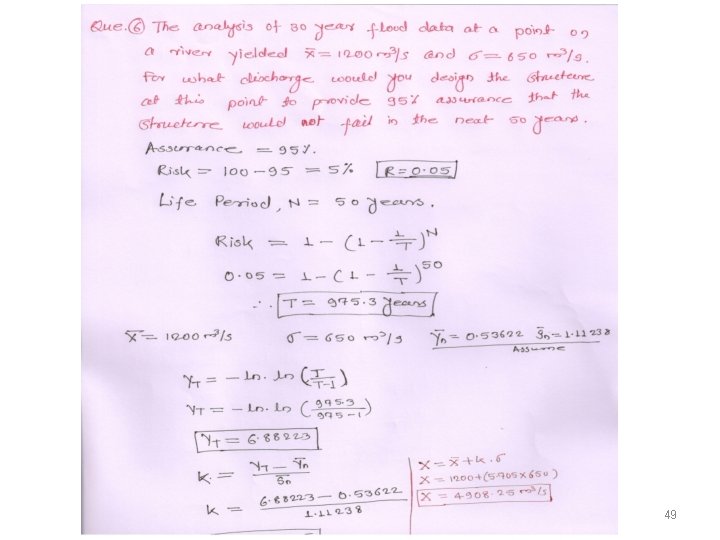 Que.⑥ The analysis of 30 year flood data at a point on
a river yielded x̄ = 1200 m³/s and σ = 650 m³/s.
For what discharge would you design the structure
at this point to provide 95% assurance that the
structure would not fail in the next 50 years.
Assurance = 95%.
Risk = 100 - 95 = 5% R = 0.05
Life Period, N = 50 years.
Risk = 1 - (1 - 1/T)^N
0.05 = 1 - (1 - 1/T)^50
∴ T = 975.3 years
x̄ = 1200 m³/s σ = 650 m³/s ȳn = 0.53622 s̄n = 1.11238
Assume
YT = - ln. ln (T/T-1)
YT = - ln. ln (975.3/975-1)
YT = 6.88223
k. = YT - Ȳn / Sn
k = 6.88223 - 0.53622 / 1.11238
X = x̄ + k.σ
X = 1200 + (5.705 x 650)
X = 4908.25 m³/s
49